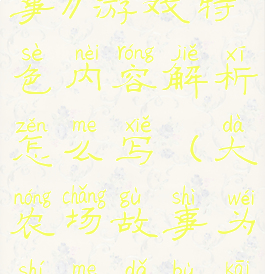 事//游戏特
sè nèi róng jiě xī
色内容解析
zěn me xiě dà
怎么写(大
nóng chǎng gù shì wèi
农场故事为
shí me dǎ bù kāi